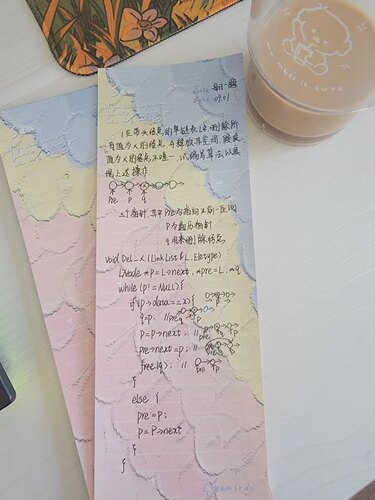 每日一题
Date 09.01
1.在带头结点的单链表L中,删除所
有值为x的结点,并释放其空间,假设
值为x的结点不唯一,试编写算法以实
现上述操作
pre p q
三个指针,其中pre为指向不为x的
p为遍历指针
q用来删除结点
void Del_x (LinkList &L, Eletype){
LNode *p=L→next, *pre=L, *q
while (p!=NULL){
if(p→data==x){
q=p; // pre q p
p=p→next; // pre q p
pre→next=p; // pre q p
free(q); // pre p
}
else {
pre=p;
p=p→next
}
}
Creamsoda